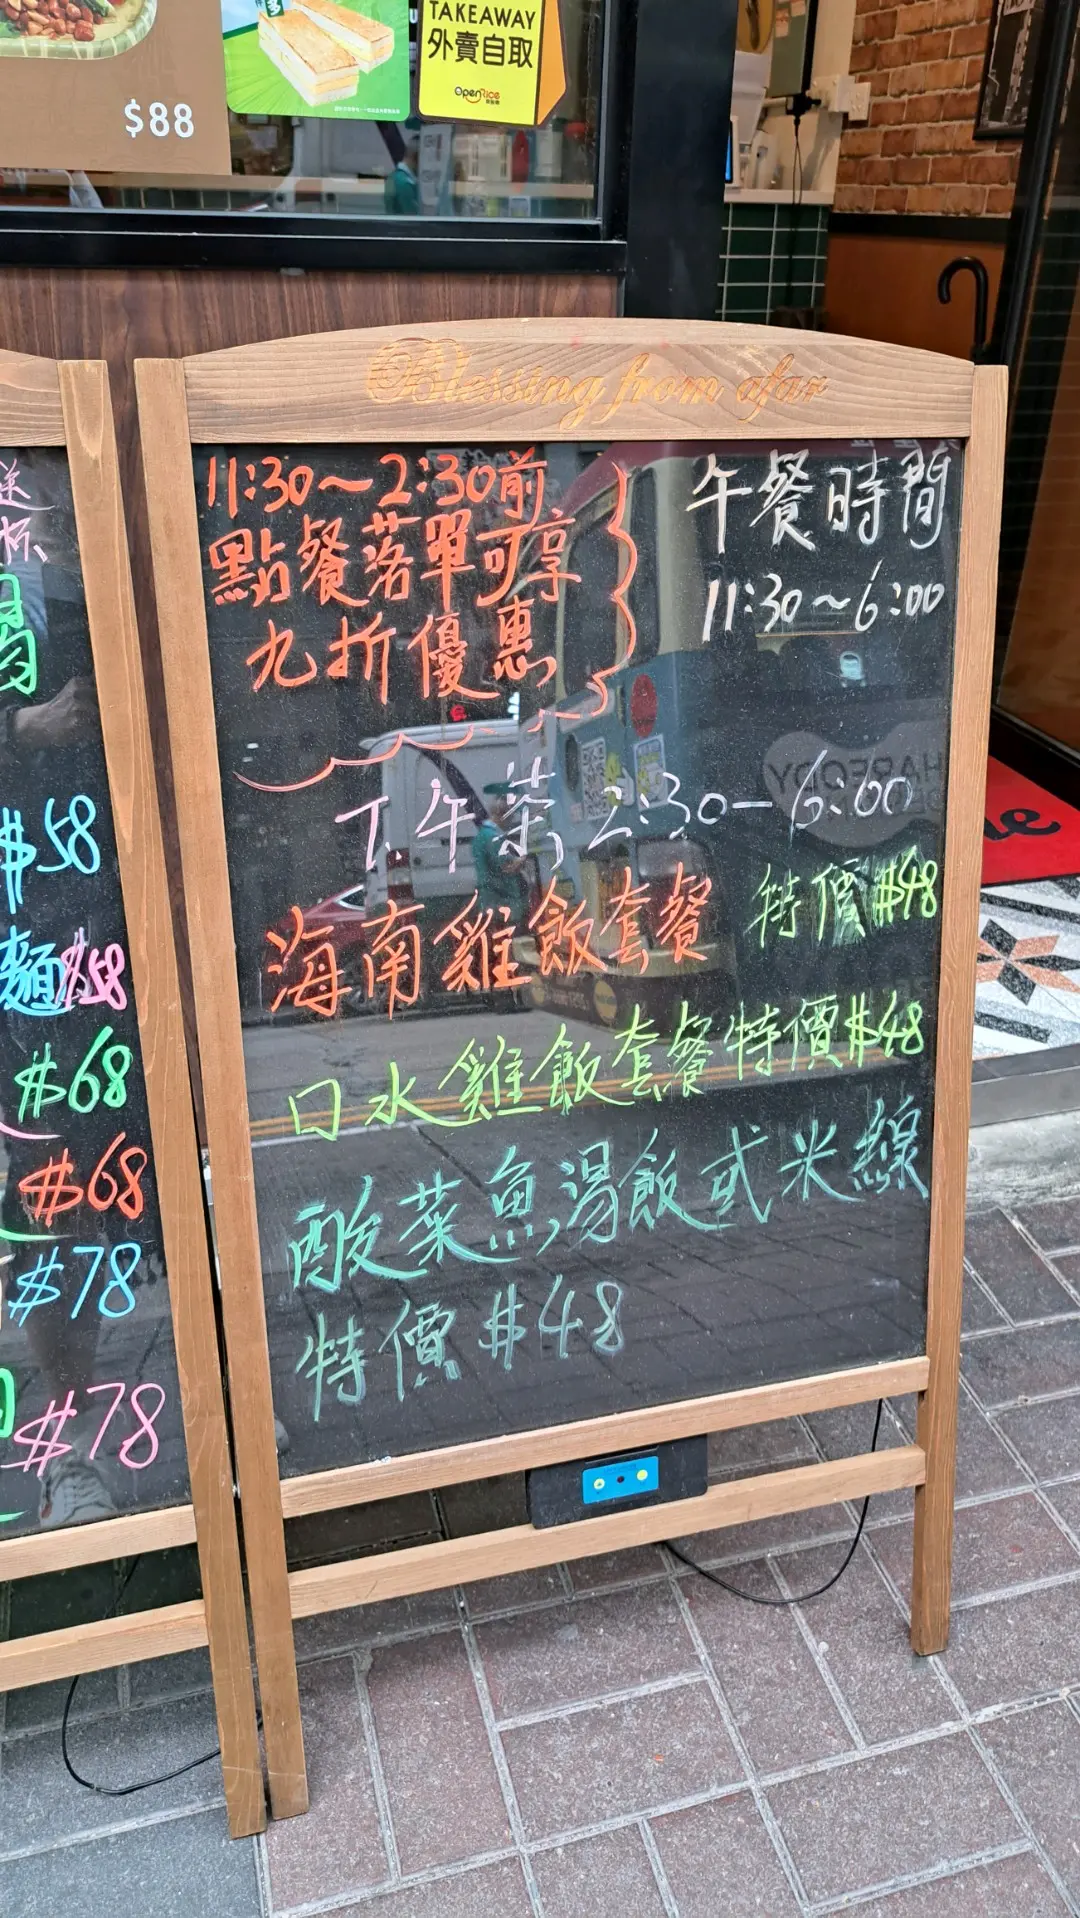 $88
TAKEAWAY
外賣自取
OpenRice
Blessing from afar
11:30～2:30前
點餐落單可享
九折優惠
午餐時間
11:30～6:00
下午茶 2:30－6:00
海南雞飯套餐 特價$48
口水雞飯套餐特價$48
酸菜魚湯飯或米線
特價$48
送
杯、
$58
麵$58
$68
$68
$78
$78